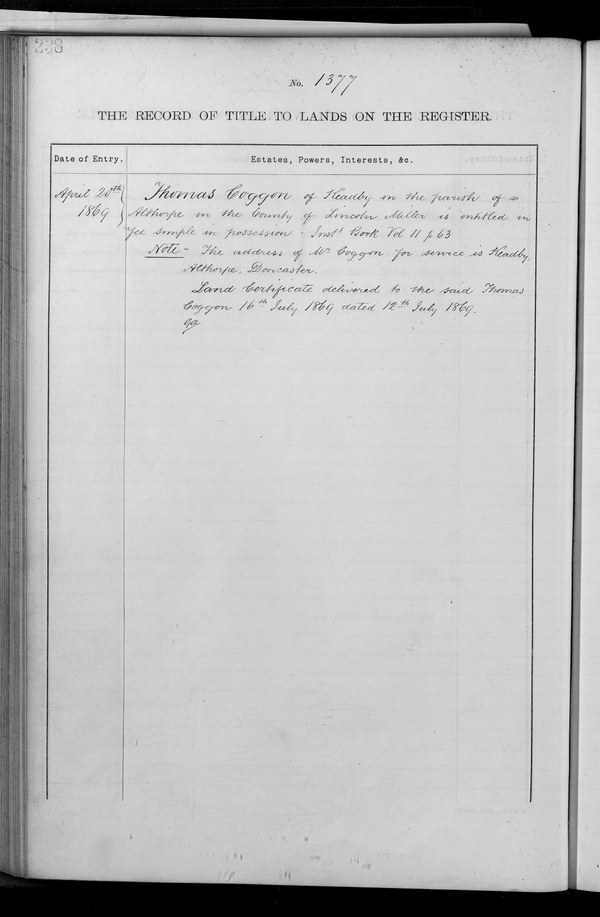 238
No. 1377
THE RECORD OF TITLE TO LANDS ON THE REGISTER.
Date of Entry.
Estates, Powers, Interests, &c.
April 20th
1869
Thomas Coggon of Keadby in the parish of
Althorpe in the County of Lincoln Miller is entitled in
fee simple in possession - Inst. Book Vol 11 p 63
Note - The address of Mr Coggon for service is Keadby,
Althorpe, Doncaster.
Land Certificate delivered to the said Thomas
Coggon 16th July 1869 dated 12th July 1869.